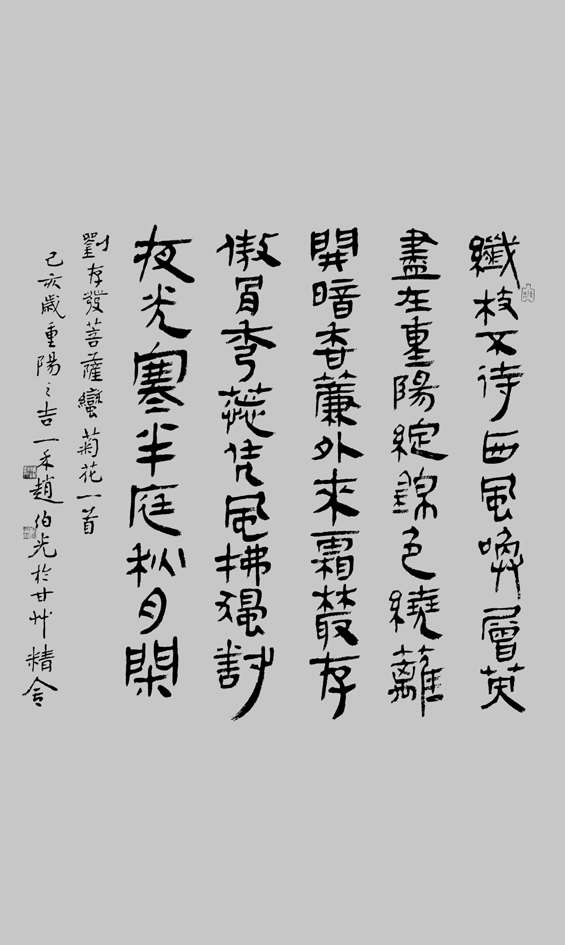 纖枝不待西風喚層英
盡在重陽綻錦色繞蘺
開暗香簾外來霜叢存
傲骨秀蕊凭風拂獨討
夜光寒半庭秋月閑
劉存發菩薩蠻菊花一首
己亥歲重陽之吉一禾趙伯光於甘草精舍